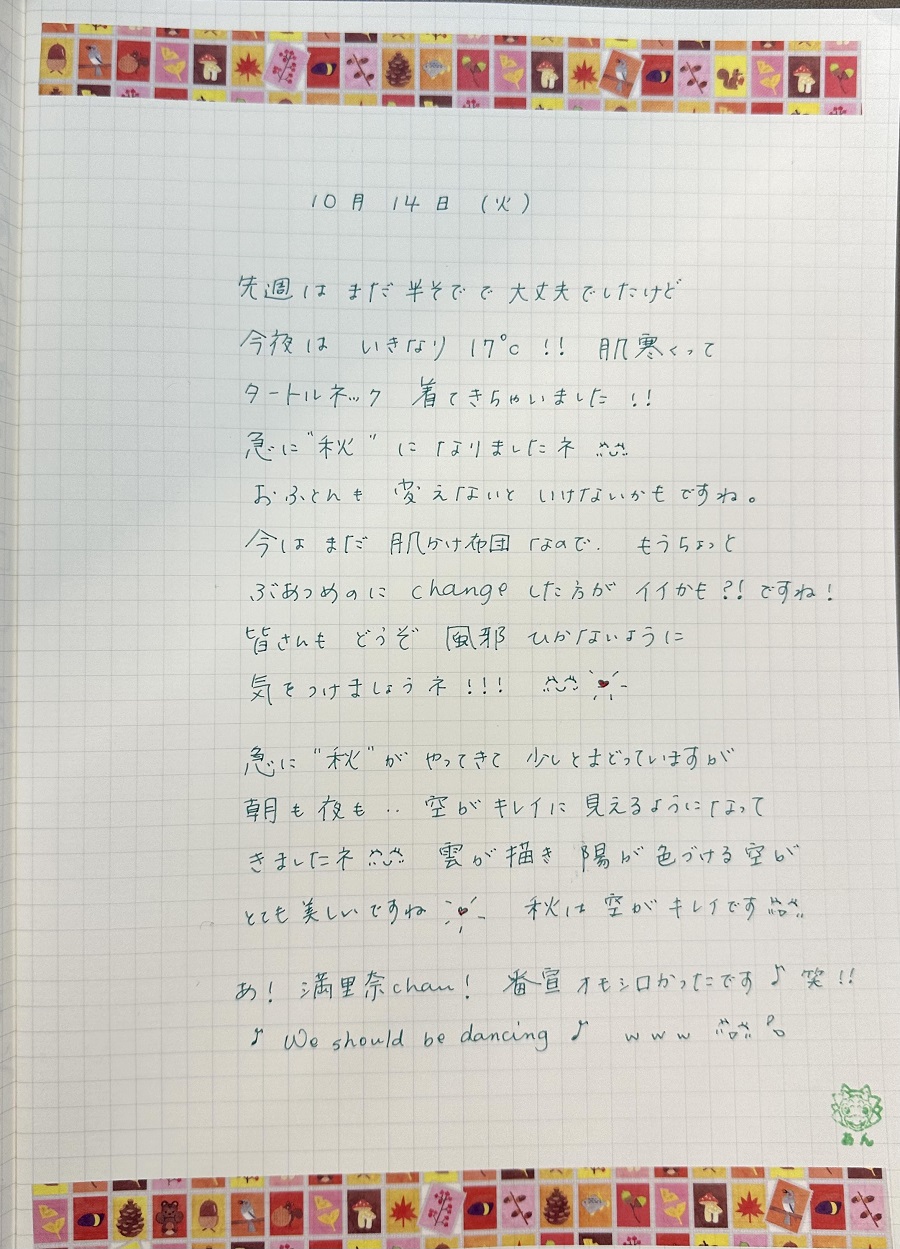 10月 14日 (火)
先週は まだ 半そでで 大丈夫でしたけど
今夜は いきなり 17℃ !! 肌寒くって
タートルネック 着てきちゃいました !!
急に"秋" に なりましたネ
おふとんも 変えないと いけないかもですね。
今は まだ 肌かけ布団 なので. もうちょっと
ぶあつめのに change した方が イイかも?! ですね!
皆さんも どうぞ 風邪 ひかないように
気をつけましょうネ !!!
急に "秋"が やってきて 少しとまどっていますが
朝も夜も ‥ 空が キレイに 見えるようになって
きましたネ 雲が描き 陽が色づける空が
とても美しいですね 秋は 空が キレイです
あ! 満里奈chan! 番宣 オモシロかったです♪ 笑 !!
♪ We should be dancing ♪ w w w
あん